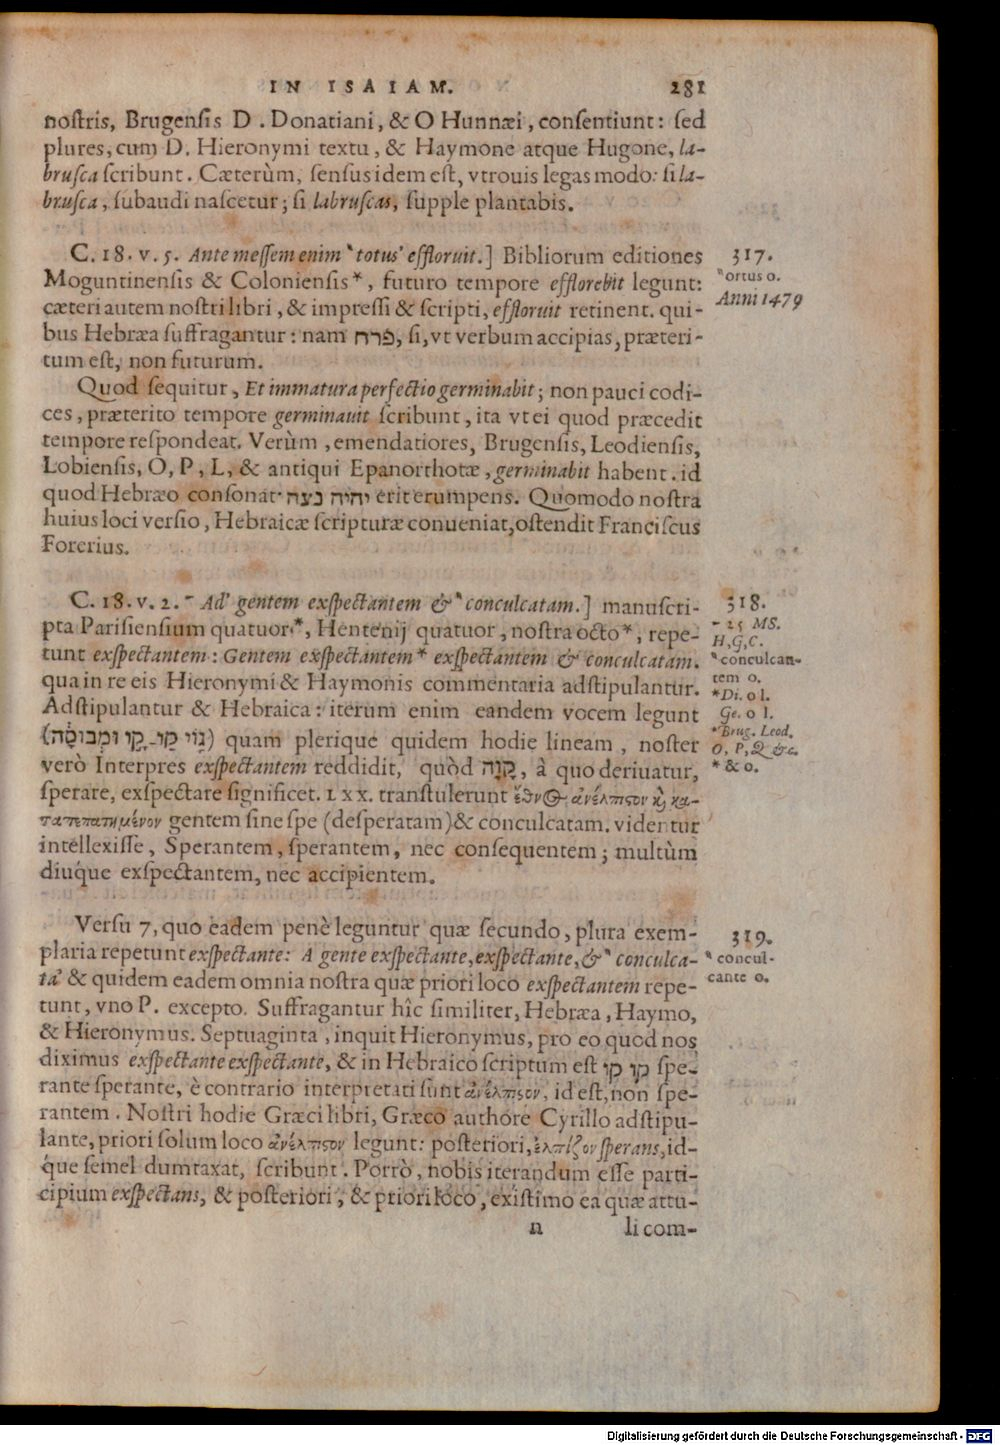 IN ISAIAM. 281
noſtris, Brugenſis D. Donatiani, & O Hunnæi, conſentiunt: ſed
plures, cum D. Hieronymi textu, & Haymone atque Hugone, la-
bruſca ſcribunt. Cæterùm, ſenſus idem eſt, vtrouis legas modo: ſi la-
bruſca, ſubaudi naſcetur; ſi labruſcas, ſupple plantabis.
C. 18. v. 5. Ante meſſem enim ‵totus’ effloruit.] Bibliorum editiones
Moguntinenſis & Colonienſis*, futuro tempore efflorebit legunt:
cæteri autem noſtri libri, & impreſſi & ſcripti, effloruit retinent. qui-
bus Hebræa ſuffragantur: nam פרח, ſi, vt verbum accipias, præteri-
tum eſt, non futurum.
317.
‵ortus o.
Anni 1479
Quod ſequitur, Et immatura perfectio germinabit; non pauci codi-
ces, præterito tempore germinauit ſcribunt, ita vt ei quod præcedit
tempore reſpondeat. Verùm, emendatiores, Brugenſis, Leodienſis,
Lobienſis, O, P, L, & antiqui Epanorthotæ, germinabit habent. id
quod Hebræo conſonat יהיה נצה erit erumpens. Quomodo noſtra
huius loci verſio, Hebraicæ ſcripturæ conueniat, oſtendit Franciſcus
Forerius.
C. 18. v. 2. ⁻ Ad’ gentem exſpectantem & ‵conculcatam.] manuſcri-
pta Pariſienſium quatuor*, Hentenij quatuor, noſtra octo*, repe-
tunt exſpectantem: Gentem exſpectantem* exſpectantem & conculcatam.
qua in re eis Hieronymi & Haymonis commentaria adſtipulantur.
Adſtipulantur & Hebraica: iterum enim eandem vocem legunt
(גוֹי קַו־קָו וּמְבוּסָה) quam plerique quidem hodie lineam, noſter
verò Interpres exſpectantem reddidit, quòd קָוָה, à quo deriuatur,
ſperare, exſpectare ſignificet. LXX. tranſtulerunt ἔθνος ἀνέλπιστον κὶ κα-
ταπεπατημένον gentem ſine ſpe (deſperatam) & conculcatam. videntur
intellexiſſe, Sperantem, ſperantem, nec conſequentem; multùm
diuque exſpectantem, nec accipientem.
318.
⁻ 25 MS.
H, G, C.
‵conculcan-
tem o.
*Di. o l.
Ge. o l.
*Brug. Leod.
O, P, Q &c.
* & o.
Verſu 7, quo eadem penè leguntur quæ ſecundo, plura exem-
plaria repetunt exſpectante: A gente exſpectante, exſpectante, & ‵conculca-
ta’ & quidem eadem omnia noſtra quæ priori loco exſpectantem repe-
tunt, vno P. excepto. Suffragantur hîc ſimiliter, Hebræa, Haymo,
& Hieronymus. Septuaginta, inquit Hieronymus, pro eo quod nos
diximus exſpectante exſpectante, & in Hebraico ſcriptum eſt קו קו ſpe-
rante ſperante, è contrario interpretati ſunt ἀνέλπιστον, id eſt, non ſpe-
rantem. Noſtri hodie Græci libri, Græco authore Cyrillo adſtipu-
lante, priori ſolum loco ἀνέλπιστον legunt: poſteriori, ἐλπίζον ſperans, id-
que ſemel dumtaxat, ſcribunt. Porrò, nobis iterandum eſſe parti-
cipium exſpectans, & poſteriori, & priori loco, exiſtimo ea quæ attu-
n li com-
319.
‵concul-
cante o.
Digitalisierung gefördert durch die Deutsche Forschungsgemeinschaft - DFG